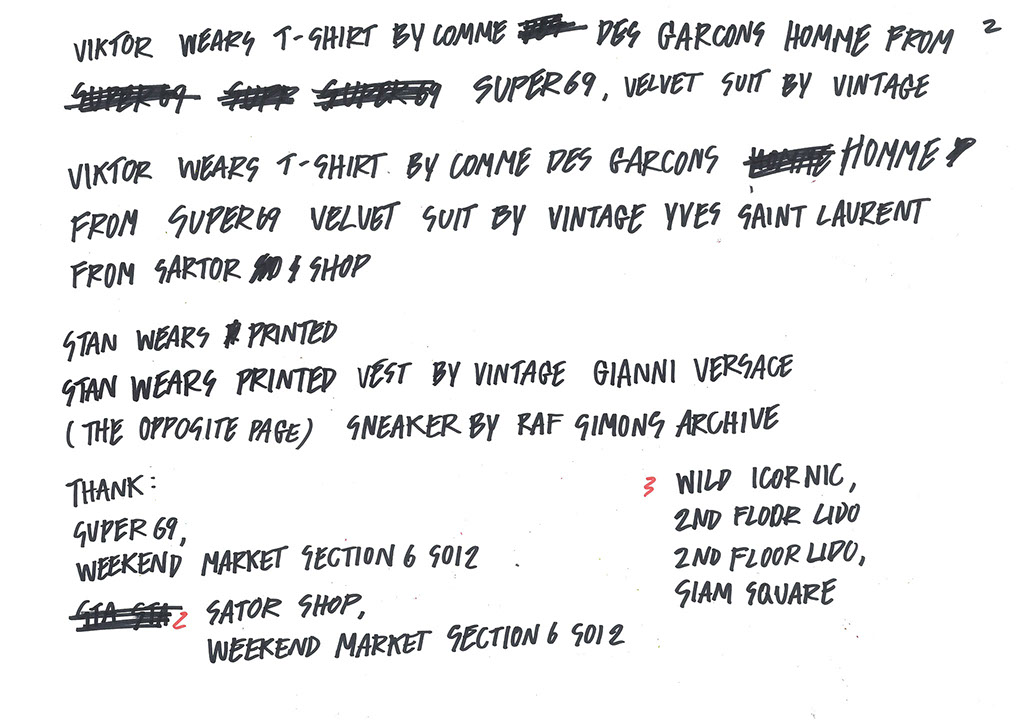 VIKTOR WEARS T-SHIRT BY COMME DES GARCONS HOMME FROM 2
SUPER69 SUPP SUPER69 SUPER69, VELVET SUIT BY VINTAGE
VIKTOR WEARS T-SHIRT. BY COMME DES GARCONS HOMME HOMME
FROM SUPER69 VELVET SUIT BY VINTAGE YVES SAINT LAURENT
FROM SARTOR SHOP
STAN WEARS PRINTED
STAN WEARS PRINTED VEST BY VINTAGE GIANNI VERSACE
(THE OPPOSITE PAGE) SNEAKER BY RAF SIMONS ARCHIVE
THANK:
SUPER 69,
WEEKEND MARKET SECTION 6 SOI2
STA STA 2 SATOR SHOP,
WEEKEND MARKET SECTION 6 SOI2
3 WILD ICORNIC,
2ND FLOOR LIDO
2ND FLOOR LIDO,
SIAM SQUARE